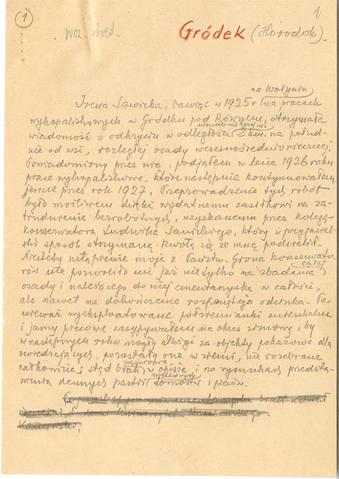 1
1
Wcz. śred.
Gródek (Horodok)
na Wołyniu
Irena Sawicka, bawiąc w 1925 r. na pracach
wykopaliskowych w Gródku pod Równem, otrzymała
wiadomość o odkryciu w odległości 2 km. na połud-
nie od wsi, rozległej osady wczesnośredniowiecznej.
Powiadomiony przez nią, podjąłem w lecie 1926 roku
prace wykopaliskowe, które następnie kontynuowałem
jeszcze przez rok 1927. Przeprowadzenie tych robót
było możliwem dzięki wydatnemu zasiłkowi na za-
trudnienie bezrobotnych, uzyskanemu przez kolegę
konserwatora Ludwika Sawickiego, który w przyjaciel-
ski sposób otrzymaną kwotą się ze mną podzielił.
Niestety ustąpienie moje z Państw. Grona konserwato-
rów nie pozwoliło mi już nie tylko na zbadanie całej
osady i należącego do niej cmentarzyska w całości,
ale nawet na dokończenie rozpoczętego odcinka. Po-
nieważ wyeksploatowane półziemianki mieszkalne
i jamy piecowe zasypywałem na okres zimowy, by
w następnych roku mogły służyć za objekty pokazowe dla
zwiedzających, pozostały one w ziemi, nie rozebrane
całkowicie; stąd brak w opisie i na rysunkach przedsta-
wienia dennych partii domów i pieców.